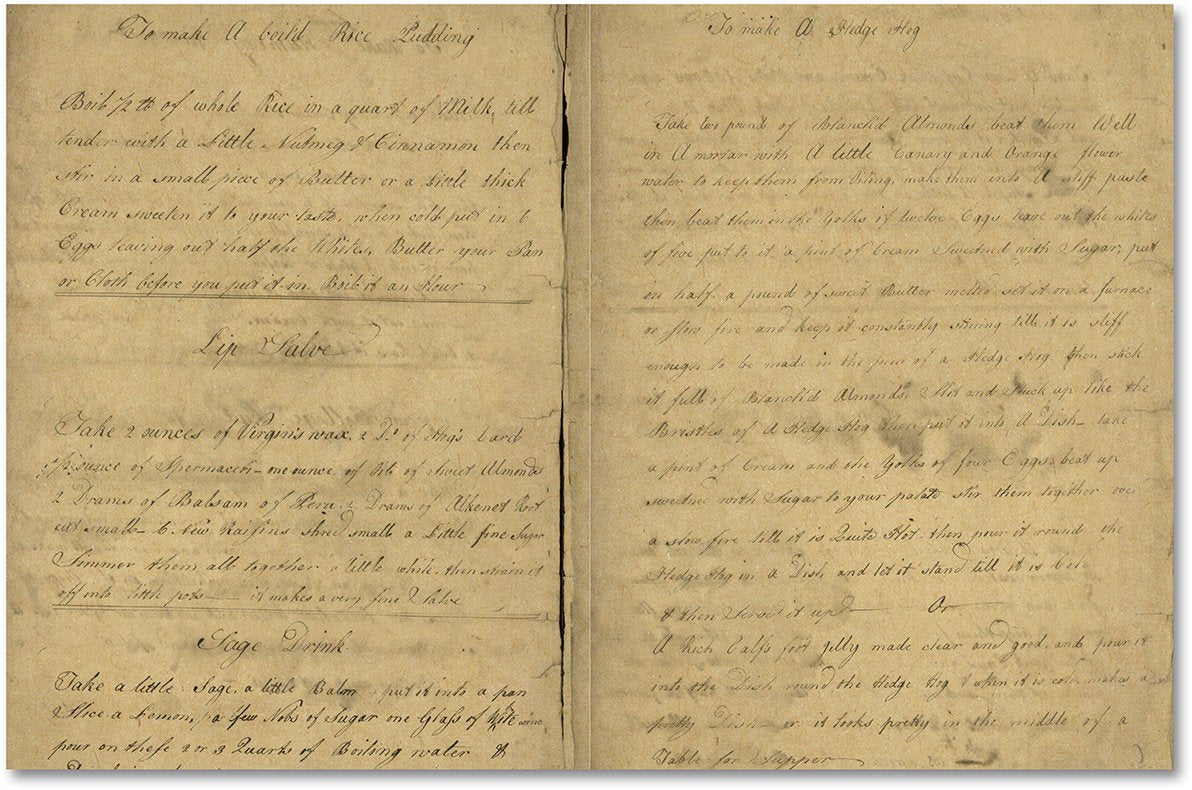 To make A boild Rice Pudding
Boil 1/2 lb of whole Rice in a quart of Milk, till
tender with a Little Nutmeg & Cinnamon then
stir in a small piece of Butter or a Little thick
Cream sweeten it to your taste, when cold put in 6
Eggs leaving out half the Whites, Butter your Pan
or Cloth before you put it in. Boil it an Hour
Lip Salve
Take 2 ounces of Virgin's wax, 2 Do. of Hog's Lard
1/2 ounce of Spermaceti - one ounce of Oile of Sweet Almonds
2 Drams of Balsam of Peru, 2 Drams of Alkenet Root
cut small - 6 New Raisins shred small a Little fine Sugar
Simmer them all together a little while, then strain it
off into little pots - it makes a very fine Salve
Sage Drink
Take a little Sage, a little Balm put it into a pan
Slice a Lemon, a few Nobs of Sugar one Glass of wine
pour on these 2 or 3 Quarts of Boiling water &
To make A Hedge Hog
Take two pound of Blanch'd Almonds beat them Well
in A mortar with A little Canary and Orange flower
water to keep them from Oiling, make them into A stiff paste
then beat them in the Yolks of twelve Eggs leave out the whites
of five put to it a pint of Cream Sweetned with Sugar, put
in half a pound of sweet Butter melted set it on a furnace
or slow fire and keep it constantly stirring till it is stiff
enough to be made in the form of a Hedge Hog then stick
it full of Blanch'd Almonds, Slit and stuck up like the
Bristles of A Hedge Hog then put it into A Dish - take
a pint of Cream and the Yolks of four Eggs beat up
sweetned with Sugar to your palate stir them together over
a slow fire till it is Quite Hot - then pour it round the
Hedge Hog in a Dish and let it stand till it is Cold
& then Serve it up - Or
A Rich Calfs foot Jelly made clear and good, and pour it
into the Dish round the Hedge Hog & when it is cold makes a
pretty Dish - or it looks pretty in the middle of a
Table for Supper